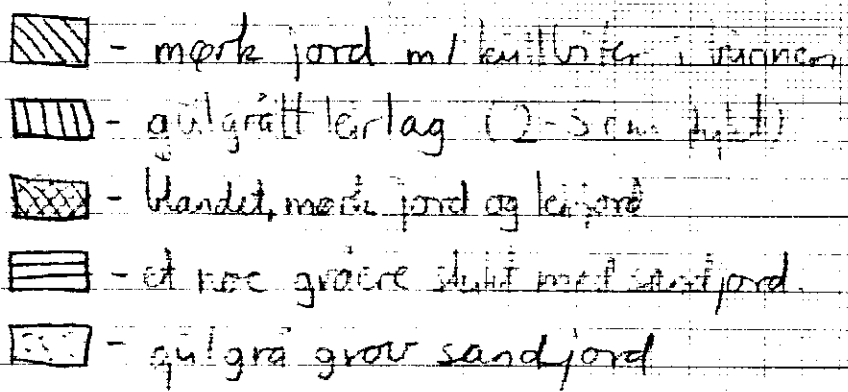 - mørk jord m/ kullbiter i bunnen
- gulgrått leirlag (2-5 cm tykt)
- blandet, mørk jord og leirjord
- et noe gråere skikt med sandjord.
- gulgrå grov sandjord